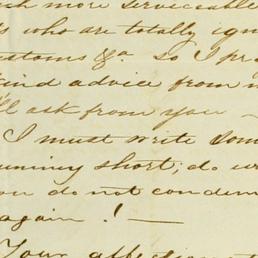 ch more serviceable
s who are totally ign
ustoms &c. so I pr
ind advice from
'll ask from you —
I must write som
unning short; do w
ou do not condem
again . ! —
Your affection